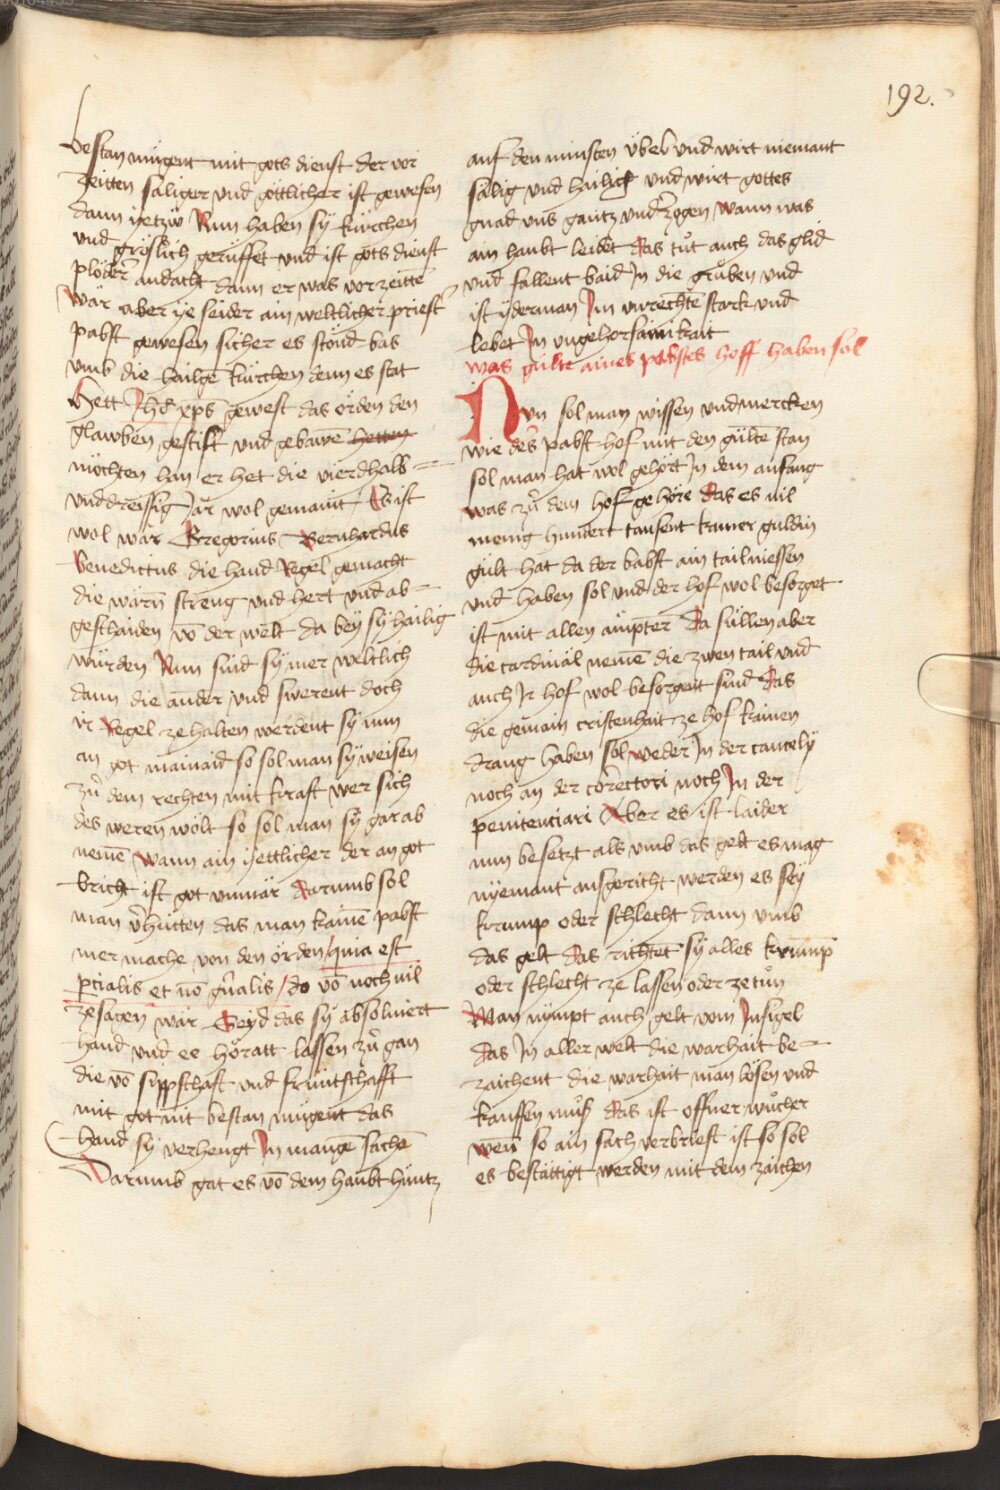 192.
bestan mügent mit gots dienst der vor
zeitten säliger und götlicher ist gewesen
dann yetzů Nun haben sÿ kirchen
und gröslich gerüffet und ist gots dienst
plöder andacht dann er was vor zeittē
wär aber ye seider ain weltlicher priest
pabst gewesen sicher es stönd bas
umb die hailgē kirchen denn es stat
Hett Jhs xp̄s gewest das orden den
glawben gestift und gebawē hetten
möchten han er het die vierdhalb=
unddreissig Jar wol gemant Es ist
wol war Gregorius Bernhardus
Benedictus die hand Regel gemacht
die warn̄ streng und hert und ab=
geschaiden vō der welt da beÿ sÿ hailig
wurden Nun sind sÿ mer weltlich
dann die ander und swerent doch
ir Regel ze halten werdent sÿ nun
an got mainaid so sol man sÿ weisen
zů dem rechten mit kraft wer sich
des weren wölt so sol man sÿ gar ab
nemē wann ain yettlicher der an got
bricht ist got unmär darumb sol
man v̄hütten das man kainē pabst
mer mache von den örden quia est
p̄cialis et nō gn̄alis / do vō noch vil
zesagen wär Seÿd das sÿ absolviert
hand und ee höratt lassen zů gan
die vō sippschaft und frintschafft
mit got nit bestan mügent das
hand sÿ verhengt In mangē sachē
Darumb gat es vō dem haubt hüntz
auf den minsten übel und wirt niemant
sälig und hailig und wirt gottes
gnad uns gantz underzogen wann was
ain haubt leidet das tůt auch das glid
und fallent baid In die grůben und
ist yderman Im unrechtē starck und
lebet In ungehorsamkait
was gülte aines pabstes hoff haben sol
Nun sol man wissen und mercken
wie des pabst hof mit den gültē stan
sol man hat wol gehört In dem anfang
was zů dem hof gehöre das es vil
menig hundert tausent kamer guldin
gült hat da der babst ain tail niessen
und haben sol und der hof wol besorget
ist mit allen ämpter Da süllen aber
die cardinäl nemē die zwen tail und
auch Ir hof wol besorgent sind das
die gemain cristenhait ze hof kainen
drang haben sol weder In der cancelÿ
noch an der correctori noch In der
penitenciari Aber es ist laider
nun besetzt als umb das gelt es mag
nÿemant ausgericht werden es seÿ
krump oder schlecht dann umb
das gelt das richtet sÿ alles krump
oder schlecht ze lassen oder zetůn
Man nÿmpt auch gelt vom Insigel
das In aller welt die warhait be=
zaichent die warhait man lösen und
kauffen můß das ist offner wůcher
wen so ain sach verbrieft ist so sol
es bestättigt werden mit dem zaichen